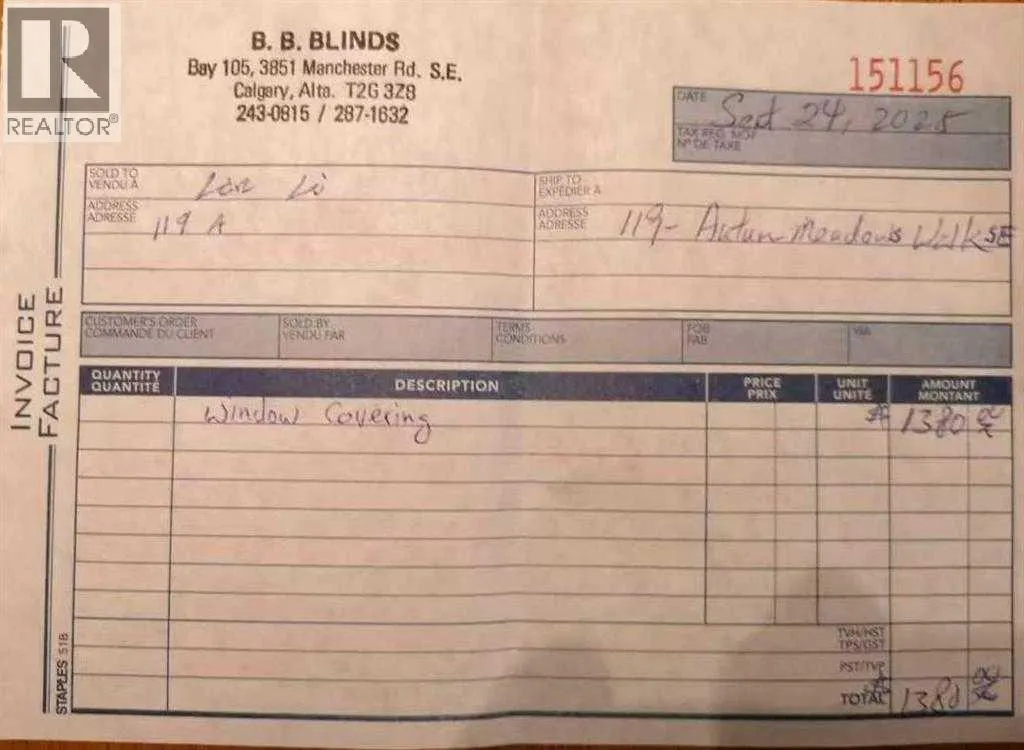 REALTOR®
B. B. BLINDS
Bay 105, 3851 Manchester Rd. S.E.
Calgary, Alta. T2G 3Z8
243-0815 / 287-1632
151156
DATE Sept 24, 2025
TAX REG. NO.
Nº DE TAXE
SOLD TO
VENDU À
Li
SHIP TO
EXPÉDIER À
ADDRESS
ADRESSE
119 A
ADDRESS
ADRESSE
119- Autum Meadows Walk SE
INVOICE
FACTURE
CUSTOMER'S ORDER
COMMANDE DU CLIENT
SOLD BY
VENDU PAR
TERMS
CONDITIONS
FOB
FAB
VIA
QUANTITY
QUANTITÉ
DESCRIPTION
PRICE
PRIX
UNIT
UNITÉ
AMOUNT
MONTANT
Window Covering $ 1380
TVH/HST
TPS/GST
PST/TVP
TOTAL $ 1380
STAPLES 51B